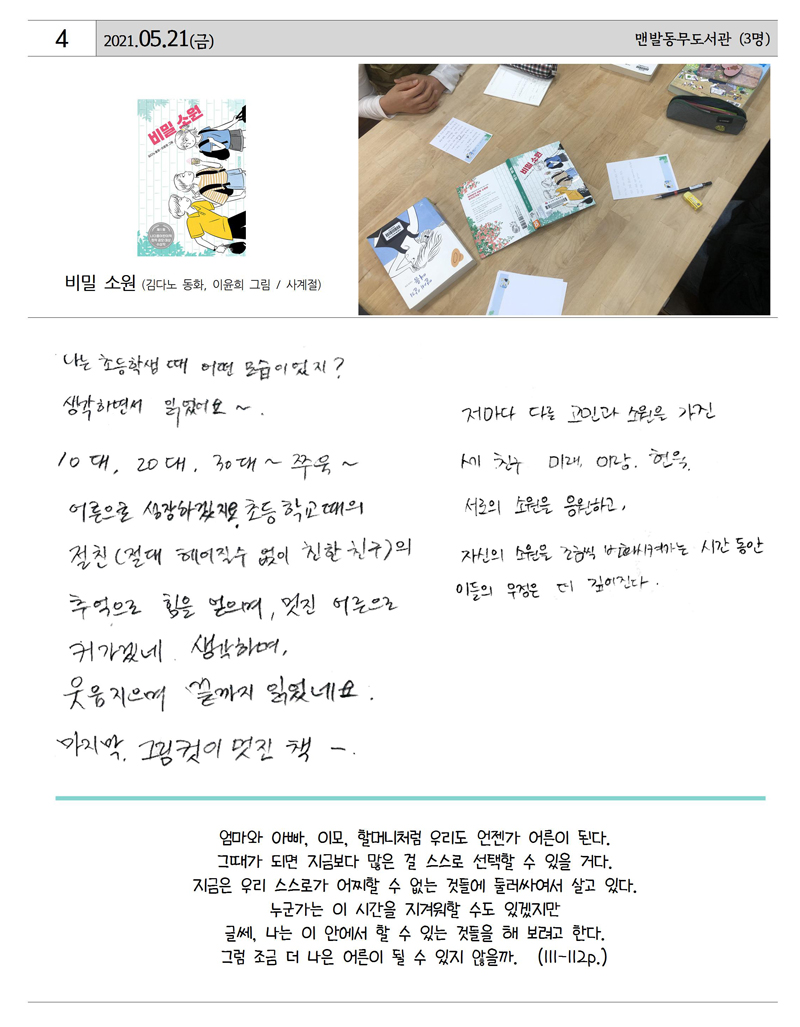 4
2021.05.21(금)
맨발동무도서관 (3명)
비밀 소원
비밀 소원
비밀 소원 (김다노 동화, 이윤희 그림 / 사계절)
나는 초등학생 때 어떤 모습이었지?
생각하면서 읽었어요 ~.
10대, 20대, 30대 ~ 쭈욱 ~
어른으로 성장하겠지요. 초등학교때의
절친(절대 헤어질수 없이 친한 친구)의
추억으로 힘을 얻으며, 멋진 어른으로
커가겠네 생각하며,
웃음지으며 끝까지 읽었네요.
마지막, 그림컷이 멋진 책 -.
저마다 다른 고민과 소원을 가진
세 친구 미래, 이랑, 현욱.
서로의 소원을 응원하고,
자신의 소원을 조금씩 변화시켜가는 시간동안
이들의 우정은 더 깊어진다.
엄마와 아빠, 이모, 할머니처럼 우리도 언젠가 어른이 된다.
그때가 되면 지금보다 많은 걸 스스로 선택할 수 있을 거다.
지금은 우리 스스로가 어찌할 수 없는 것들에 둘러싸여서 살고 있다.
누군가는 이 시간을 지겨워할 수도 있겠지만
글쎄, 나는 이 안에서 할 수 있는 것들을 해 보려고 한다.
그럼 조금 더 나은 어른이 될 수 있지 않을까. (111-112p.)